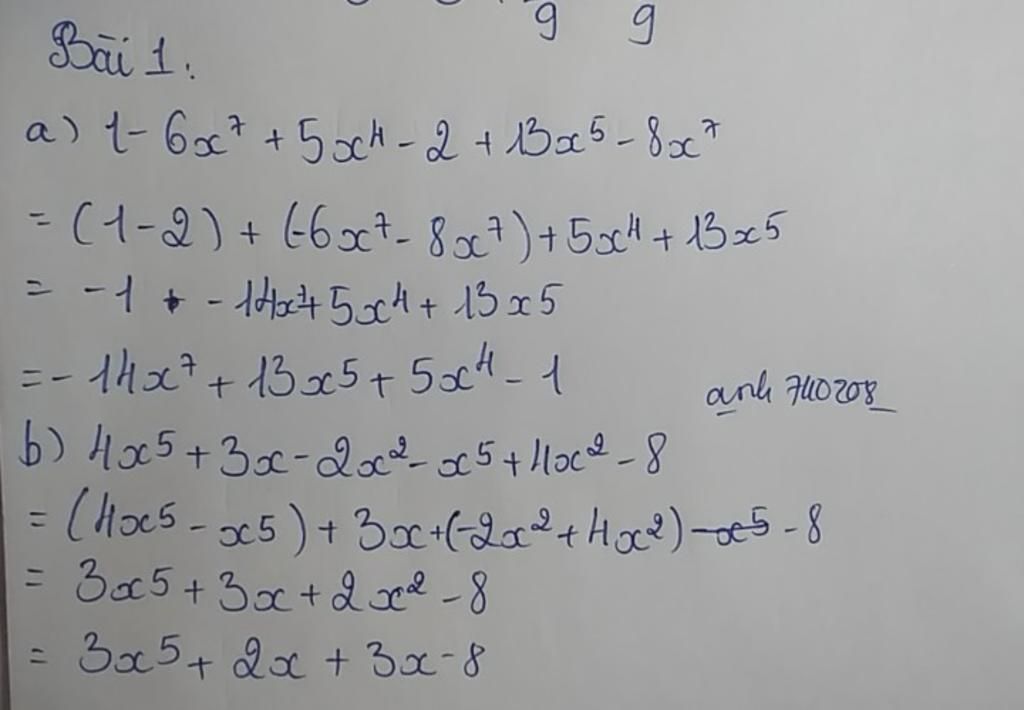 9 9
Bài 1.
a) 1 - 6x⁷ + 5x⁴ - 2 + 13x⁵ - 8x⁷
= (1 - 2) + (-6x⁷ - 8x⁷) + 5x⁴ + 13x5
= -1 + - 14x⁷ + 5x⁴ + 13x5
= - 14x⁷ + 13x5 + 5x⁴ - 1
anh 740208_
b) 4x⁵ + 3x - 2x² - x⁵ + 4x² - 8
= (4x⁵ - x5) + 3x + (-2x² + 4x²) - x⁵ - 8
= 3x⁵ + 3x + 2x² - 8
= 3x⁵ + 2x + 3x - 8